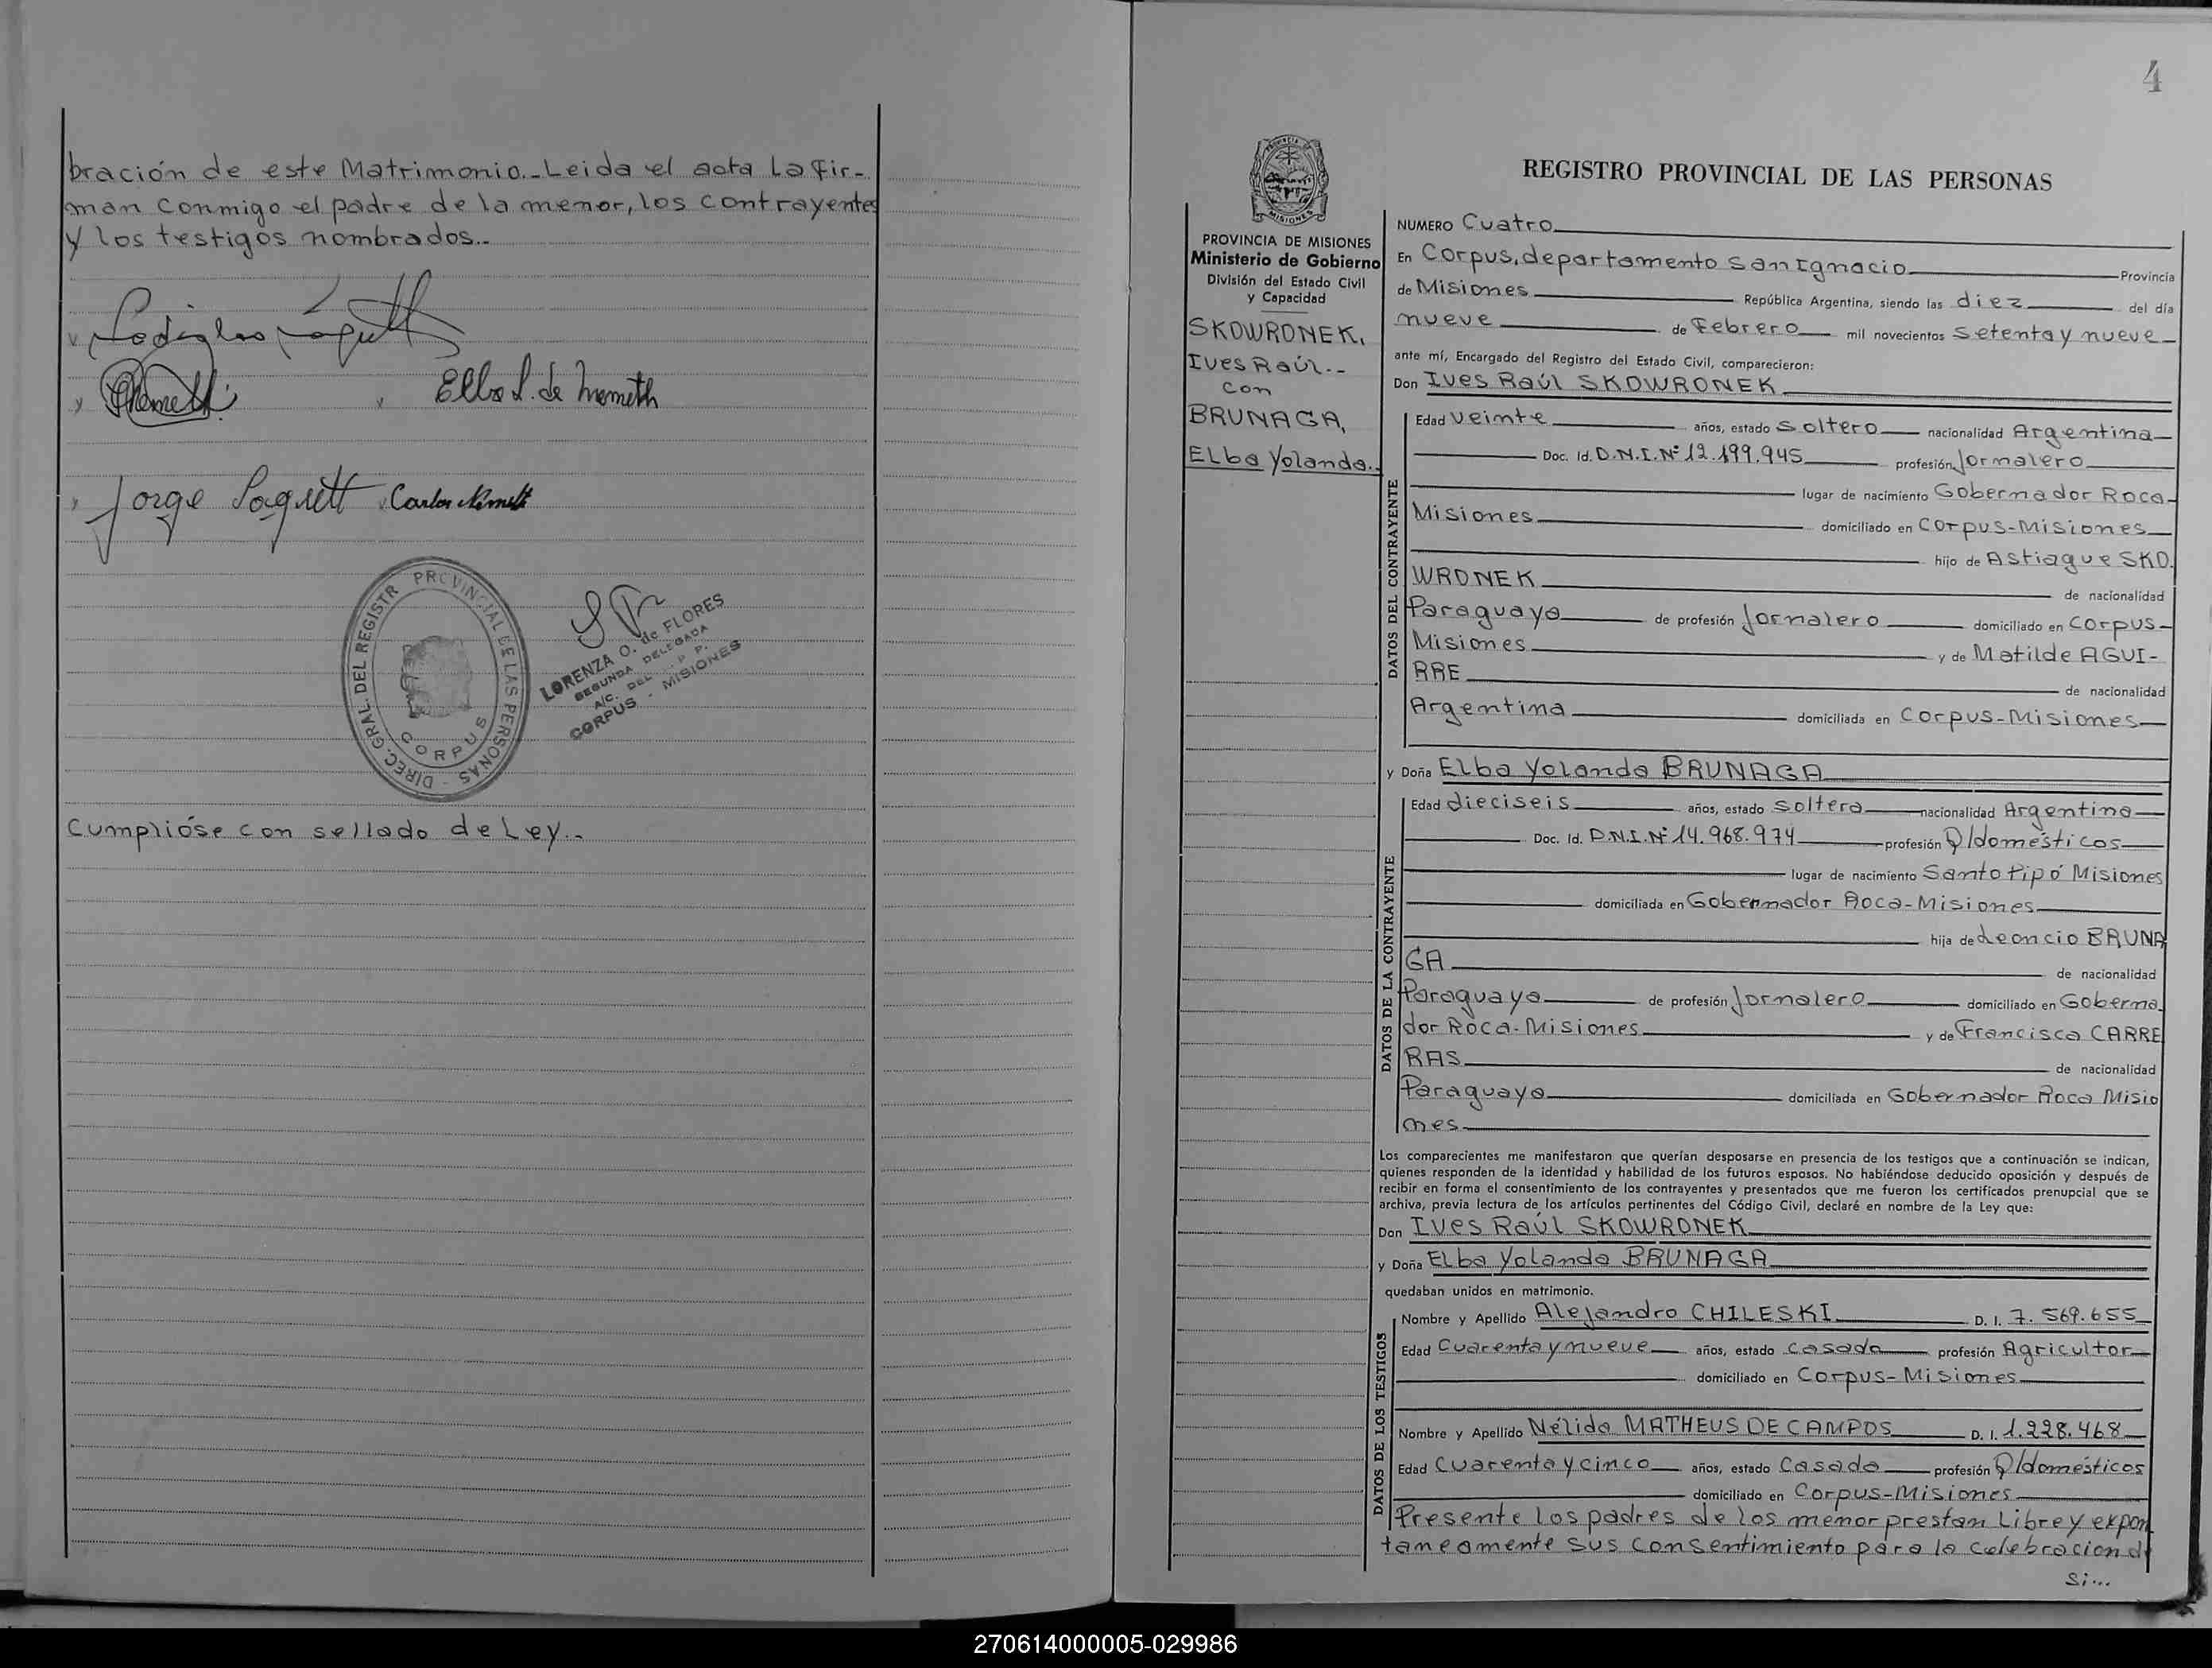 bración de este Matrimonio.-Leida el acta La fir-
man conmigo el padre de la menor, los contrayentes
y los testigos nombrados.-
Elba S. de Nemeth
Jorge Carlos
DIREC. GRAL. DEL REGISTR PROVINCIAL DE LAS PERSONAS - CORPUS
LORENZA O. de FLORES
SEGUNDA DELEGADA
A/C. DEL P. P.
CORPUS - MISIONES
Cumplióse con sellado de Ley.-
4
PROVINCIA DE MISIONES
Ministerio de Gobierno
División del Estado Civil
y Capacidad
SKOWRONEK,
Ives Raúl.-
con
BRUNAGA,
Elba Yolanda.-
REGISTRO PROVINCIAL DE LAS PERSONAS
NUMERO Cuatro
En Corpus, departamento San Ignacio Provincia
de Misiones República Argentina, siendo las diez del día
nueve de Febrero mil novecientos setenta y nueve
ante mí, Encargado del Registro del Estado Civil, comparecieron:
Don Ives Raúl SKOWRONEK
DATOS DEL CONTRAYENTE
Edad veinte años, estado soltero nacionalidad Argentina
Doc. Id. D.N.I. Nº 12.199.945 profesión Jornalero
lugar de nacimiento Gobernador Roca-
Misiones domiciliado en Corpus-Misiones
hijo de Astiague SKO
WRONEK de nacionalidad
Paraguaya de profesión Jornalero domiciliado en Corpus-
Misiones y de Matilde AGUI-
RRE de nacionalidad
Argentina domiciliada en Corpus-Misiones
y Doña Elba Yolanda BRUNAGA
DATOS DE LA CONTRAYENTE
Edad dieciseis años, estado soltera nacionalidad Argentina
Doc. Id. D.N.I. Nº 14.968.974 profesión Q/domésticos
lugar de nacimiento Santo Pipó Misiones
domiciliada en Gobernador Roca-Misiones
hija de Leoncio BRUNA
GA de nacionalidad
Paraguaya de profesión Jornalero domiciliado en Goberna
dor Roca-Misiones y de Francisca CARRE
RAS de nacionalidad
Paraguaya domiciliada en Gobernador Roca Misio
nes
Los comparecientes me manifestaron que querían desposarse en presencia de los testigos que a continuación se indican,
quienes responden de la identidad y habilidad de los futuros esposos. No habiéndose deducido oposición y después de
recibir en forma el consentimiento de los contrayentes y presentados que me fueron los certificados prenupcial que se
archiva, previa lectura de los artículos pertinentes del Código Civil, declaré en nombre de la Ley que:
Don Ives Raúl SKOWRONEK
y Doña Elba Yolanda BRUNAGA
quedaban unidos en matrimonio.
DATOS DE LOS TESTIGOS
Nombre y Apellido Alejandro CHILESKI D. I. 7.569.655
Edad Cuarenta y nueve años, estado casado profesión Agricultor
domiciliado en Corpus-Misiones
Nombre y Apellido Nélida MATHEUS DE CAMPOS D. I. 1.228.468
Edad Cuarenta y cinco años, estado Casada profesión Q/domésticos
domiciliado en Corpus-Misiones
Presente los padres de los menor prestan Libre y expon
taneamente sus consentimiento para la celebracion de
Si...
270614000005-029986